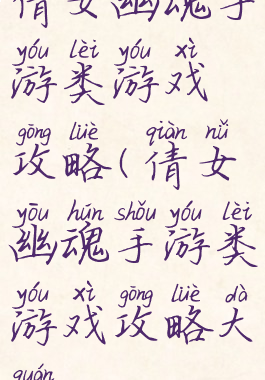 倩女幽魂手
yóu lèi yóu xì
游类游戏
gōng lüè qiàn nǚ
攻略(倩女
yōu hún shǒu yóu lèi
幽魂手游类
yóu xì gōng lüè dà
游戏攻略大
quán